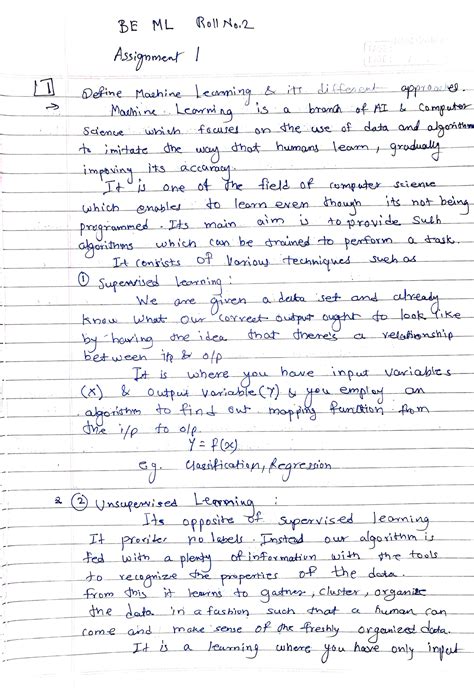 BE ML Roll No.2
Assignment 1
1 Define Machine Learning & its different approaches.
→ Machine Learning is a branch of AI & Computer
Science which focuses on the use of data and algorithm
to imitate the way that humans learn, gradually
improving its accuracy.
It is one of the field of computer science
which enables to learn even though its not being
programmed. Its main aim is to provide such
algorithms which can be trained to perform a task.
It consists of various techniques such as
① Supervised Learning :
We are given a data set and already
know what our correct output ought to look like
by having the idea that there's a relationship
between i/p & o/p
It is where you have input variables
(X) & output variable (Y) & you employ an
algorithm to find out mapping function from
the i/p to o/p.
Y = f(x)
eg. Classification, Regression
2 ② Unsupervised Learning :
Its opposite of supervised learning
It provides no labels. Instead our algorithm is
fed with a plenty of information with the tools
to recognize the properties of the data.
From this it learns to gather, cluster, organize
the data in a fashion such that a human can
come and make sense of the freshly organized data.
It is a learning where you have only input